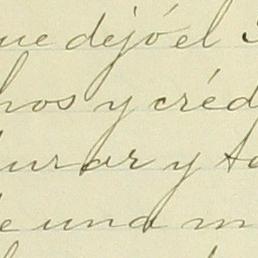 que dejó el
hos y créd
urar y to
de una m